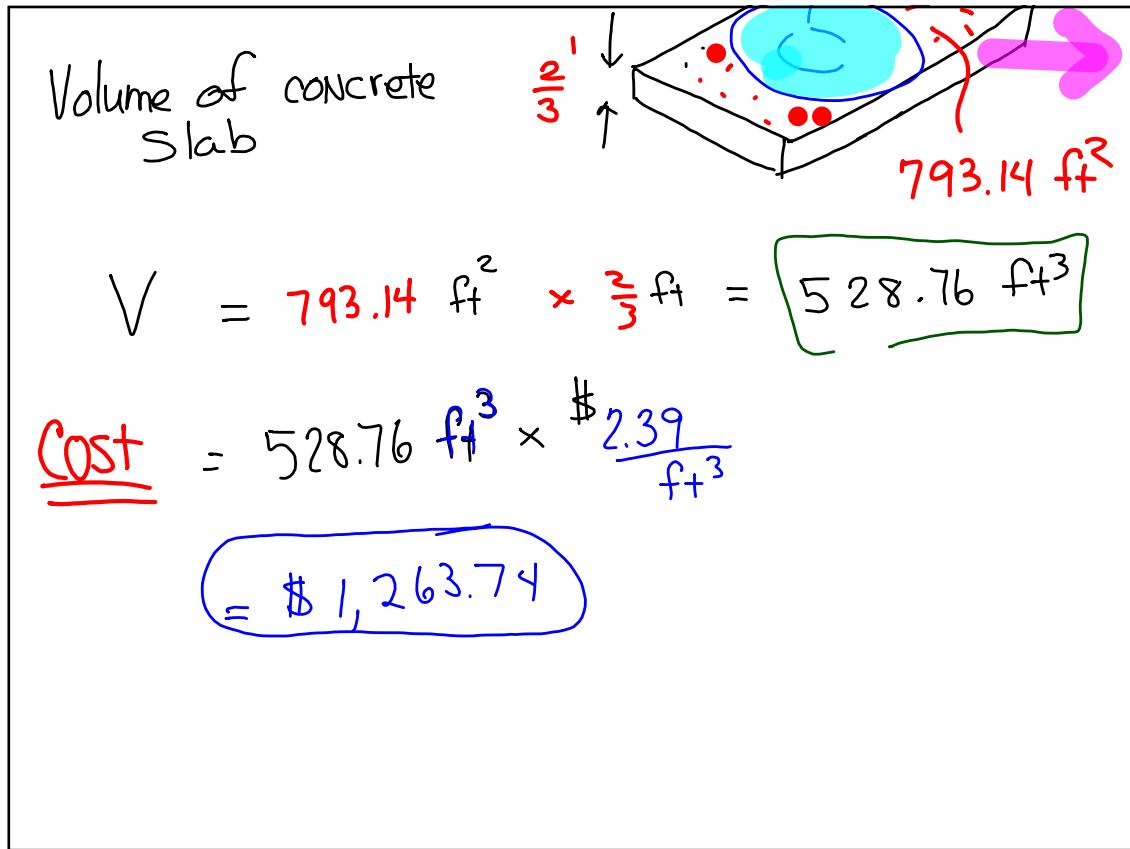 Volume of concrete
Slab
2/3'
793.14 ft²
V = 793.14 ft² × 2/3 ft = 528.76 ft³
Cost = 528.76 ft³ × $2.39/ft³
= $1,263.74